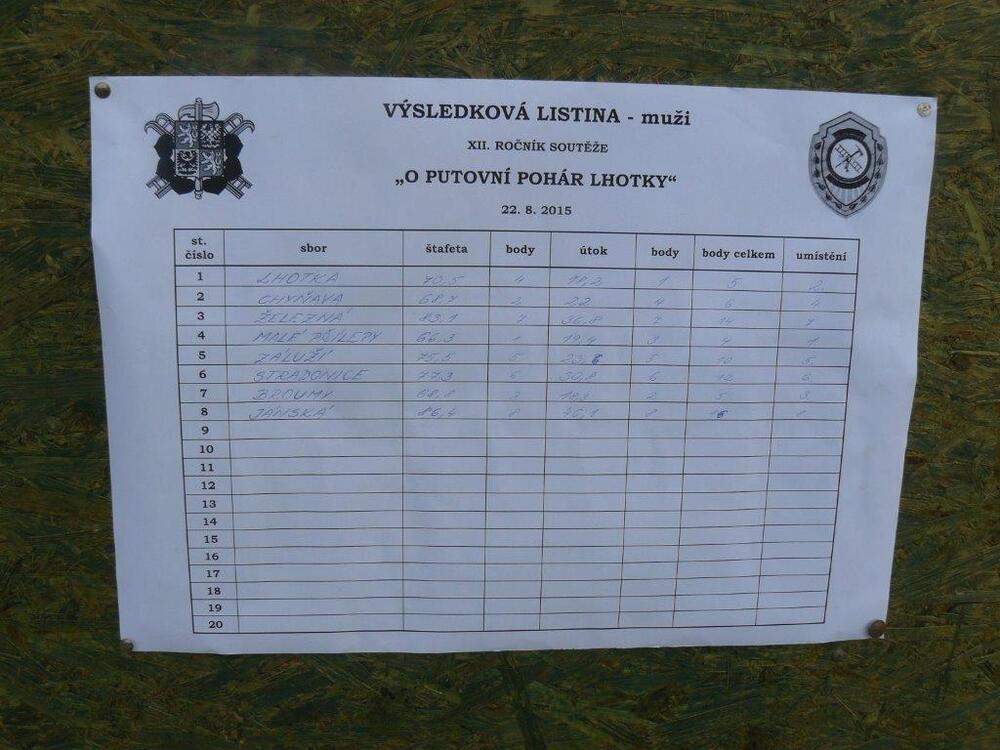 VÝSLEDKOVÁ LISTINA - muži
XII. ROČNÍK SOUTĚŽE
„O PUTOVNÍ POHÁR LHOTKY“
22. 8. 2015
st. číslo sbor štafeta body útok body body celkem umístění
1 LHOTKA 70,5 4 18,2 1 5 2.
2 CHYŇAVA 68,7 2 22 4 6 4
3 ŽELEZNÁ 83,1 7 36,8 7 14 7
4 MALÉ PŘÍLEPY 66,3 1 19,4 3 4 1
5 ZÁLUŽÍ 75,5 5 5 10 5
6 STRADONICE 77,3 6 30,8 6 12 6
7 BROUMY 68,8 3 2 5 3
8 JÁNSKÁ 86,4 8 46,1 8 16
9
10
11
12
13
14
15
16
17
18
19
20